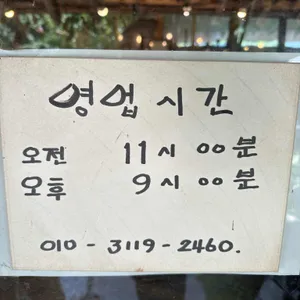 영업시간
오전 11시 00분
오후 9시 00분
010-3119-2460.